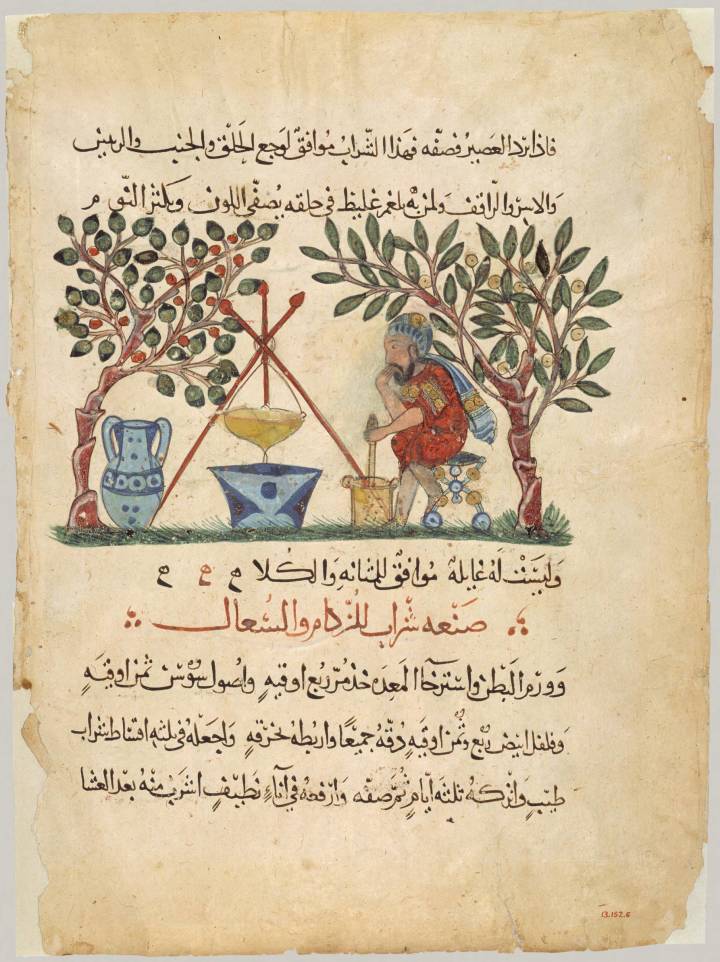 فاذا برد العصير فصفه فهذا الشراب موافق لوجع الحلق والجنب والريتين
والابس والراقف ولمن به بلغم غليظ في حلقه يصفي اللون ويكثر النوم
وليست له غايله موافق للمثانه والكلا
صنعه شراب للزكام والسعال
وورم البطن واسترخا المعده خذ مر ربع اوقيه واصول سوس ثمن اوقيه
وفلفل ابيض ربع وثمن اوقيه دقه جميعا واربطه بخرقه واجعله في ثلثه اقساط شراب
طيب واتركه ثلثه ايام ثم صفه وارفعه في اناء نظيف اشرب منه بعد العشا
13.152.6